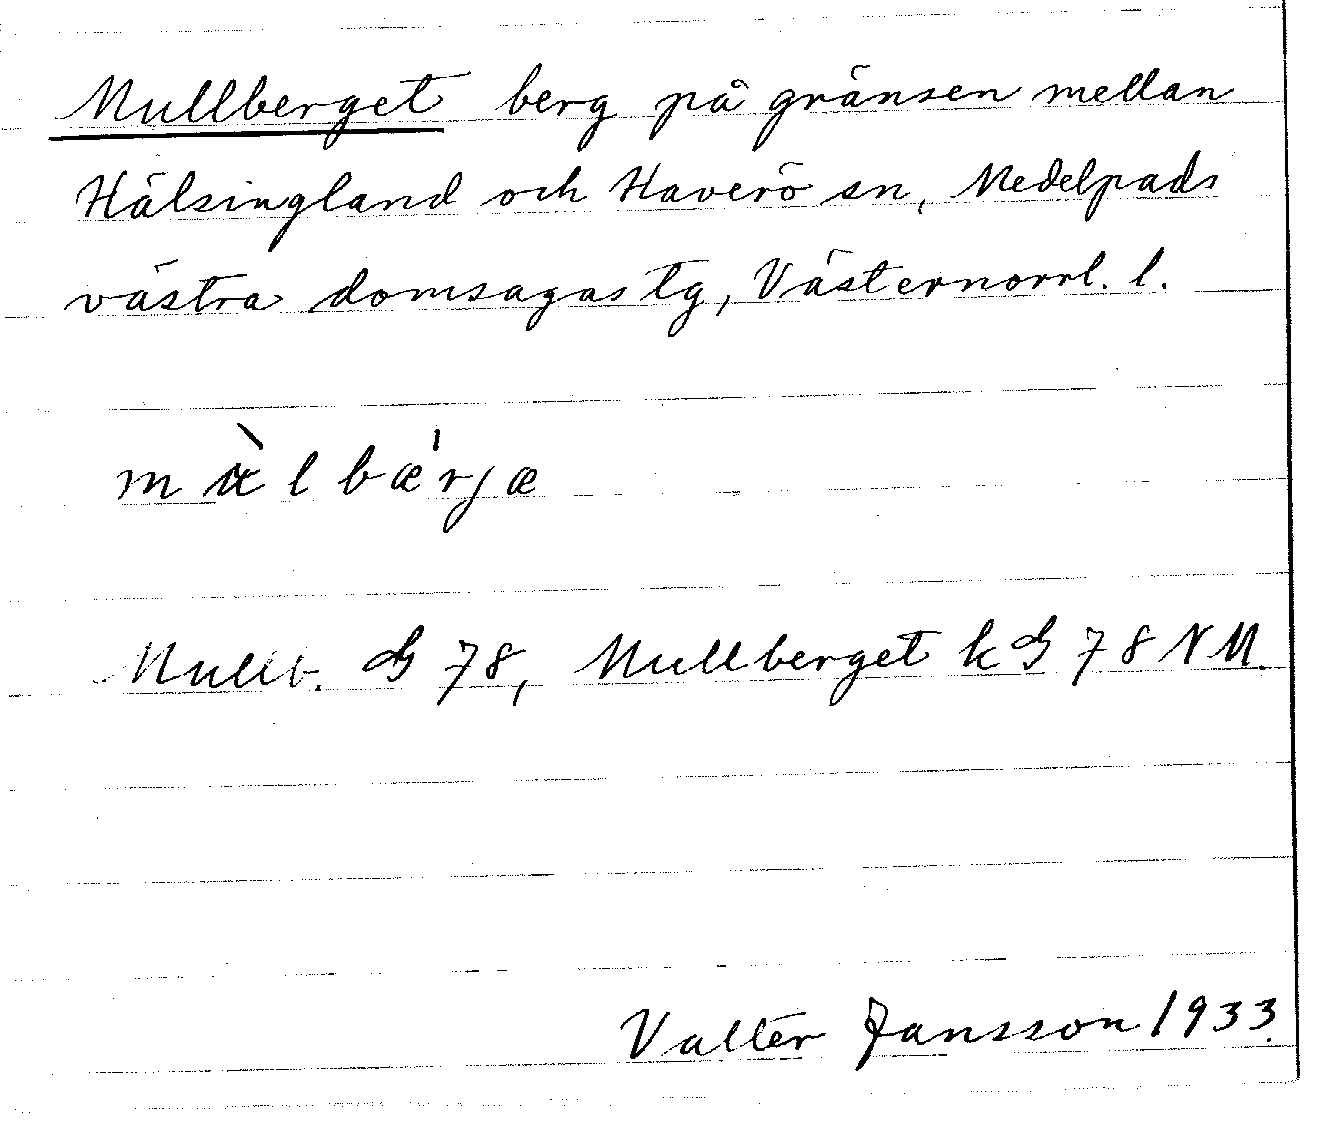 Mullberget berg på gränsen mellan
Hälsingland och Haverö sn, Medelpads
västra domsagas tg, Västernorrl. l.
Mullb. G 78, Mullberget k G 78 N M.
Valter Jansson 1933.